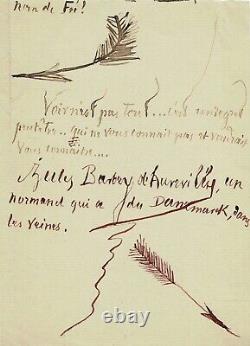 nom de Fié!
Voir n'est pas tout... c'est
peut-être.. qui ne vous connait pas et voudrait
vous connaitre...
Jules Barbey d'Aurevilly, un
normand qui a du Danemarck, dans
les veines.